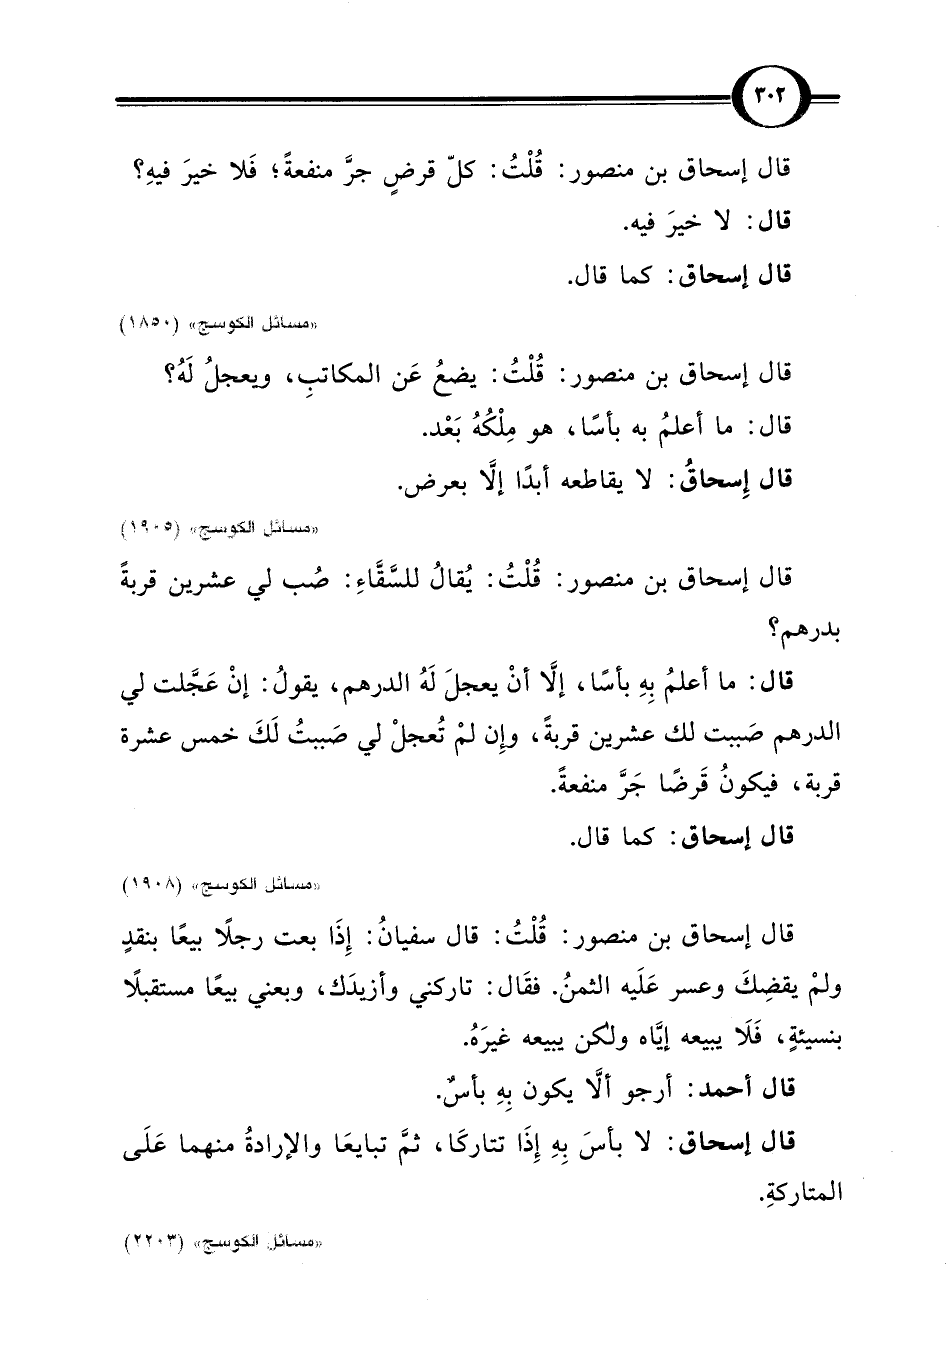 ٣٠٢
قال إسحاق بن منصور: قُلْتُ: كلّ قرضٍ جرَّ منفعةً؛ فَلا خيرَ فيهِ؟
قال: لا خيرَ فيه.
قال إسحاق: كما قال.
«مسائل الكوسج» (١٨٥٠)
قال إسحاق بن منصور: قُلْتُ: يضعُ عَن المكاتبِ، ويعجلُ لَهُ؟
قال: ما أعلمُ به بأسًا، هو مِلْكُهُ بَعْد.
قال إسحاقُ: لا يقاطعه أبدًا إلَّا بعرض.
«مسائل الكوسج» (١٩٠٥)
قال إسحاق بن منصور: قُلْتُ: يُقالُ للسَّقَّاءِ: صُب لي عشرين قربةً
بدرهم؟
قال: ما أعلمُ بِهِ بأسًا، إلَّا أنْ يعجلَ لَهُ الدرهم، يقولُ: إنْ عَجَّلت لي
الدرهم صَببت لك عشرين قربةً، وإن لمْ تُعجلْ لي صَببتُ لَكَ خمس عشرة
قربة، فيكونُ قَرضًا جَرَّ منفعةً.
قال إسحاق: كما قال.
«مسائل الكوسج» (١٩٠٨)
قال إسحاق بن منصور: قُلْتُ: قال سفيانُ: إِذَا بعت رجلًا بيعًا بنقدٍ
ولمْ يقضِكَ وعسر عَلَيه الثمنُ. فقال: تاركني وأزيدَك، وبعني بيعًا مستقبلًا
بنسيئةٍ، فَلَا يبيعه إيَّاه ولكن يبيعه غيرَهُ.
قال أحمد: أرجو ألَّا يكون بِهِ بأسٌ.
قال إسحاق: لا بأسَ بِهِ إِذَا تتاركَا، ثمَّ تبايعَا والإرادةُ منهما عَلَى
المتاركةِ.
«مسائل الكوسج» (٢٢٠٣)